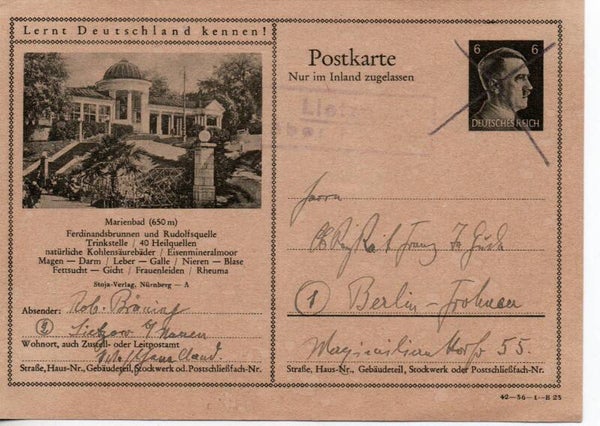 Lernt Deutschland kennen!
Marienbad (650 m)
Ferdinandsbrunnen und Rudolfsquelle
Trinkstelle / 40 Heilquellen
natürliche Kohlensäurebäder / Eisenmineralmoor
Magen — Darm / Leber — Galle / Nieren — Blase
Fettsucht — Gicht / Frauenleiden / Rheuma
Stoja-Verlag, Nürnberg — A
Absender: Rob.
2
Wohnort, auch Zustell- oder Leitpostamt
Straße, Haus-Nr., Gebäudeteil, Stockwerk od. Postschließfach-Nr.
Postkarte
Nur im Inland zugelassen
6 6
DEUTSCHES REICH
Herrn
Franz
1 Berlin-Frohnau
55.
Straße, Haus-Nr., Gebäudeteil, Stockwerk oder Postschließfach-Nr.
42—56—1—B 25